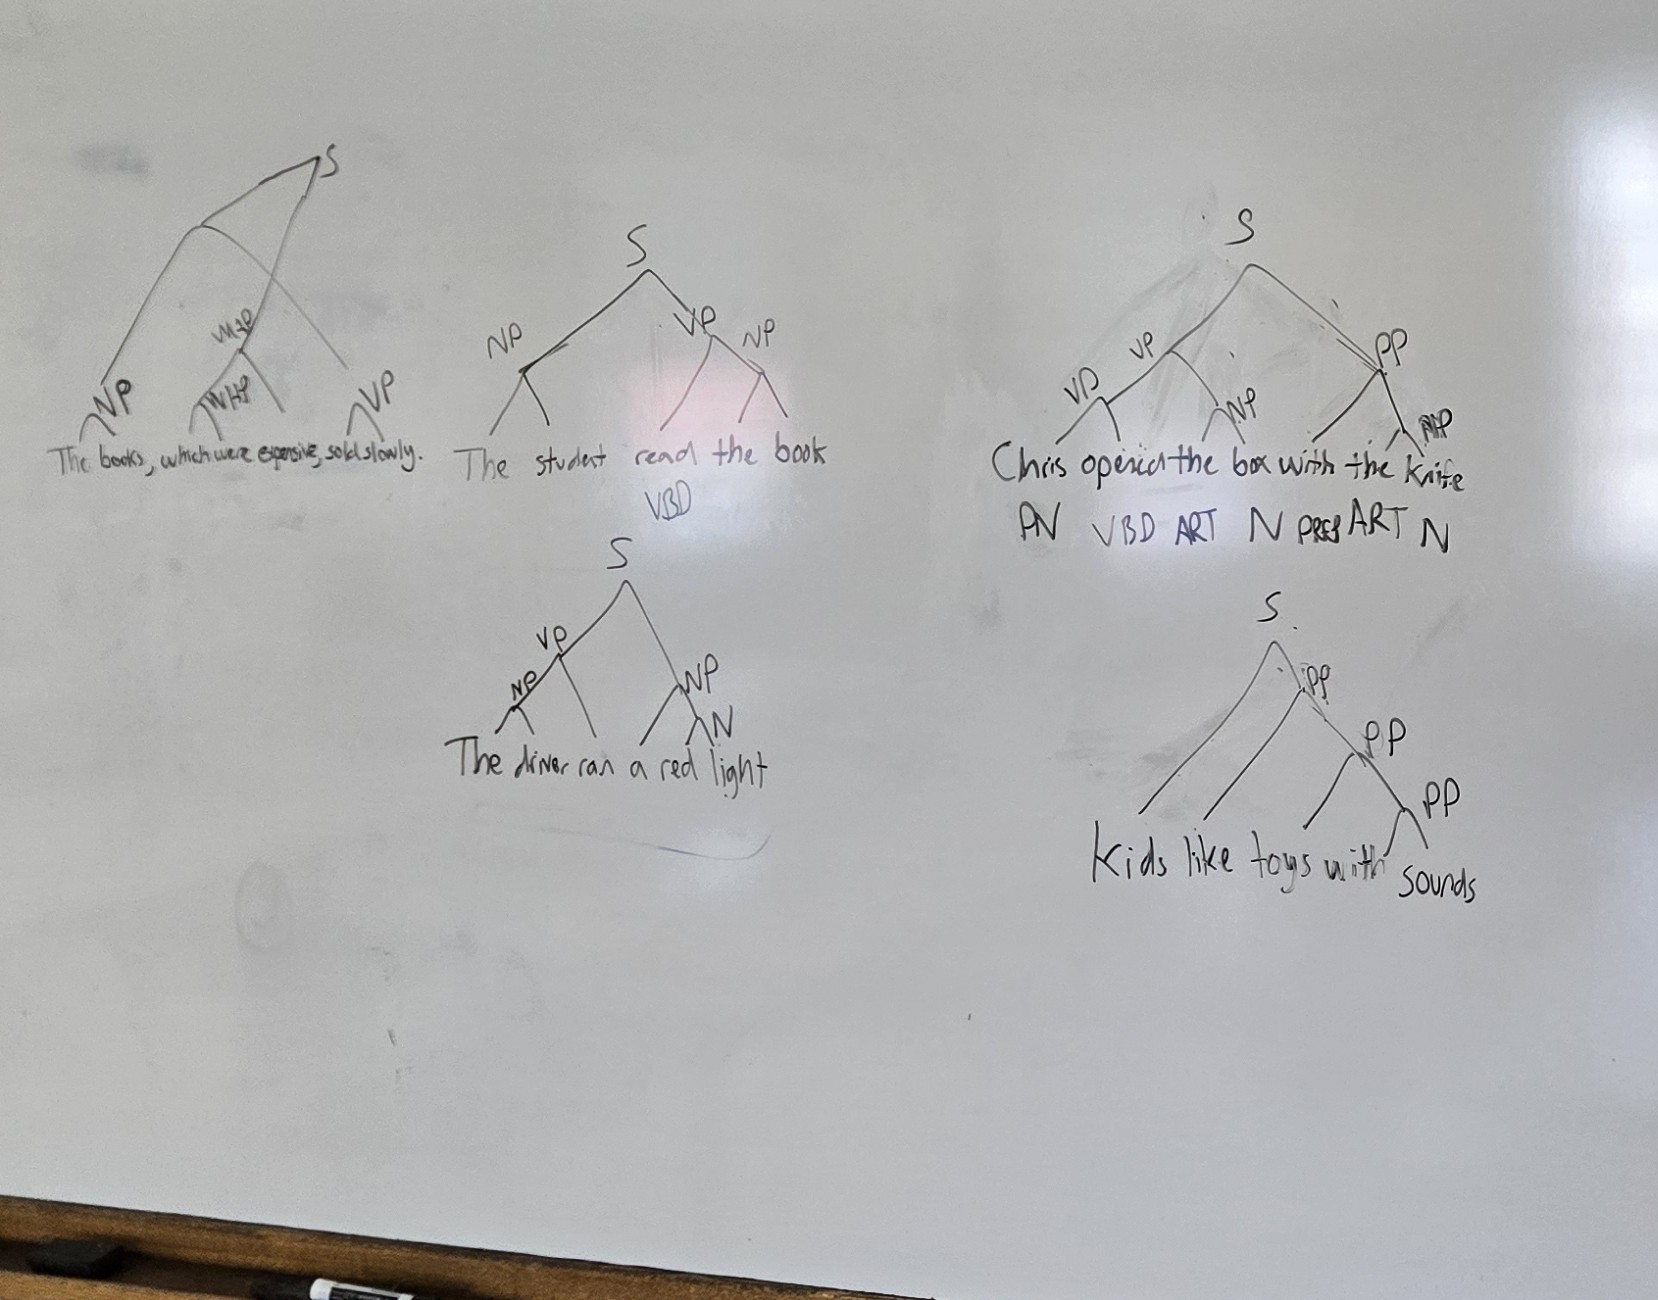 S
NP
WHP
VP
The books, which were expensive, sold slowly.
S
NP VP NP
The student read the book
VBD
S
VP
NP NP
N
The driver ran a red light
S
VP PP
VP NP NP
Chris opened the box with the knife
PN VBD ART N PREP ART N
S
PP
PP
PP
Kids like toys with sounds